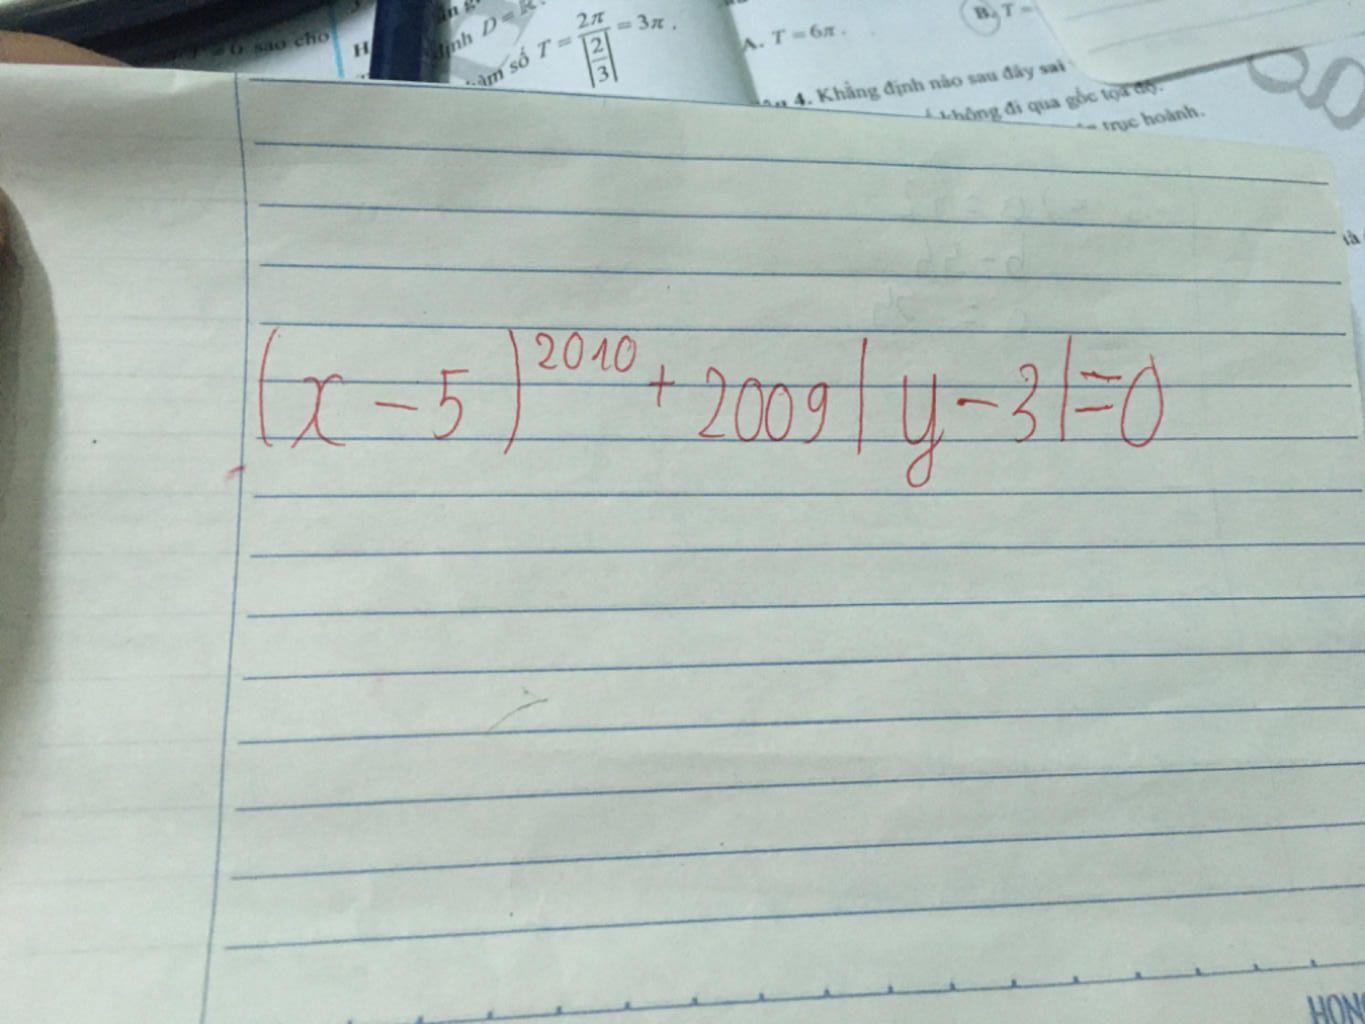 sao cho
H
định D = ℝ.
àm số T = 2π/|2/3| = 3π.
B. T =
A. T = 6π.
4. Khẳng định nào sau đây sai
không đi qua gốc tọa độ.
trục hoành.
(x - 5)^2010 + 2009|y - 3| = 0
HONG